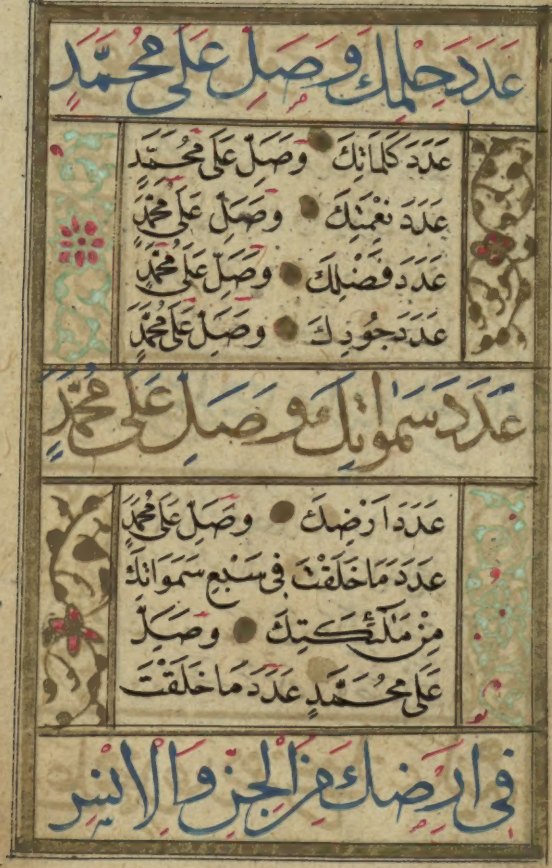 عَدَدَ حِلْمِكَ وَصَلِّ عَلَى مُحَمَّدٍ
عَدَدَ كَلِمَاتِكَ وَصَلِّ عَلَى مُحَمَّدٍ
عَدَدَ نِعْمَتِكَ وَصَلِّ عَلَى مُحَمَّدٍ
عَدَدَ فَضْلِكَ وَصَلِّ عَلَى مُحَمَّدٍ
عَدَدَ جُودِكَ وَصَلِّ عَلَى مُحَمَّدٍ
عَدَدَ سَمٰوَاتِكَ وَصَلِّ عَلَى مُحَمَّدٍ
عَدَدَ اَرْضِكَ وَصَلِّ عَلَى مُحَمَّدٍ
عَدَدَ مَا خَلَقْتَ فِى سَبْعِ سَمَوَاتِكَ
مِنْ مَلٰٓئِكَتِكَ وَصَلِّ
عَلَى مُحَمَّدٍ عَدَدَ مَا خَلَقْتَ
فِى اَرْضِكَ مِنَ الْجِنِّ وَالْاِنْسِ